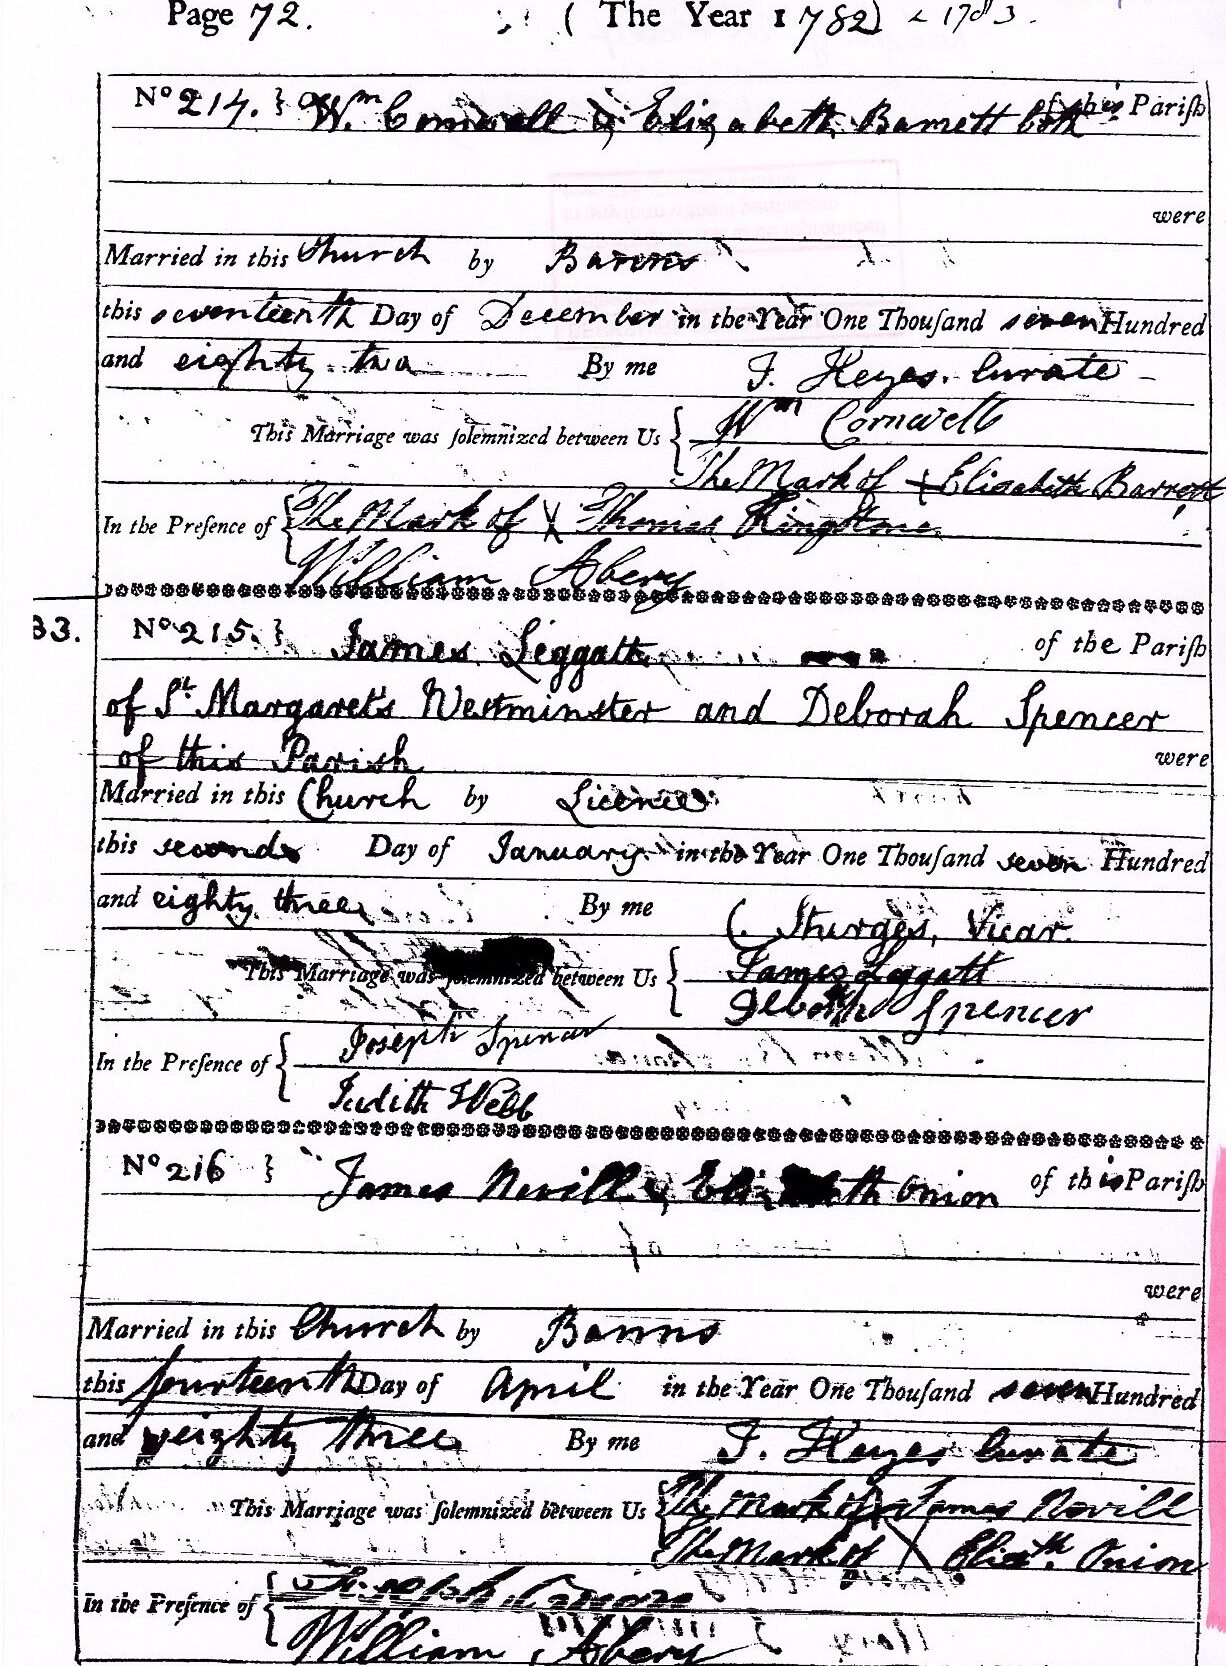 Page 72. ( The Year 1782) & 1783.
No 214. } Wm Cornwell & Elizabeth Barrett both of this Pariſh
were
Married in this Church by Banns
this seventeenth Day of December in the Year One Thouſand seven Hundred
and eighty two By me J. Heyes. Curate
This Marriage was ſolemnized between Us { Wm Cornwell
The Mark of X Elizabeth Barrett
In the Preſence of { The Mark of X Thomas
William Abery
83. No 215. } James Leggatt of the Pariſh
of St. Margaret's Westminster and Deborah Spencer
of this Parish were
Married in this Church by Licence
this second Day of January in the Year One Thouſand seven Hundred
and eighty three By me C. Sturges, Vicar.
This Marriage was ſolemnized between Us { James Leggatt
Deborah Spencer
In the Preſence of { Joseph Spencer
Judith Webb
No 216 } James Nevill & Elizabeth Onion of this Pariſh
were
Married in this Church by Banns
this fourteenth Day of April in the Year One Thouſand seven Hundred
and eighty three By me J. Heyes Curate
This Marriage was ſolemnized between Us { The Mark of X James Nevill
The Mark of X Elizth. Onion
In the Preſence of { Joseph
William Abery